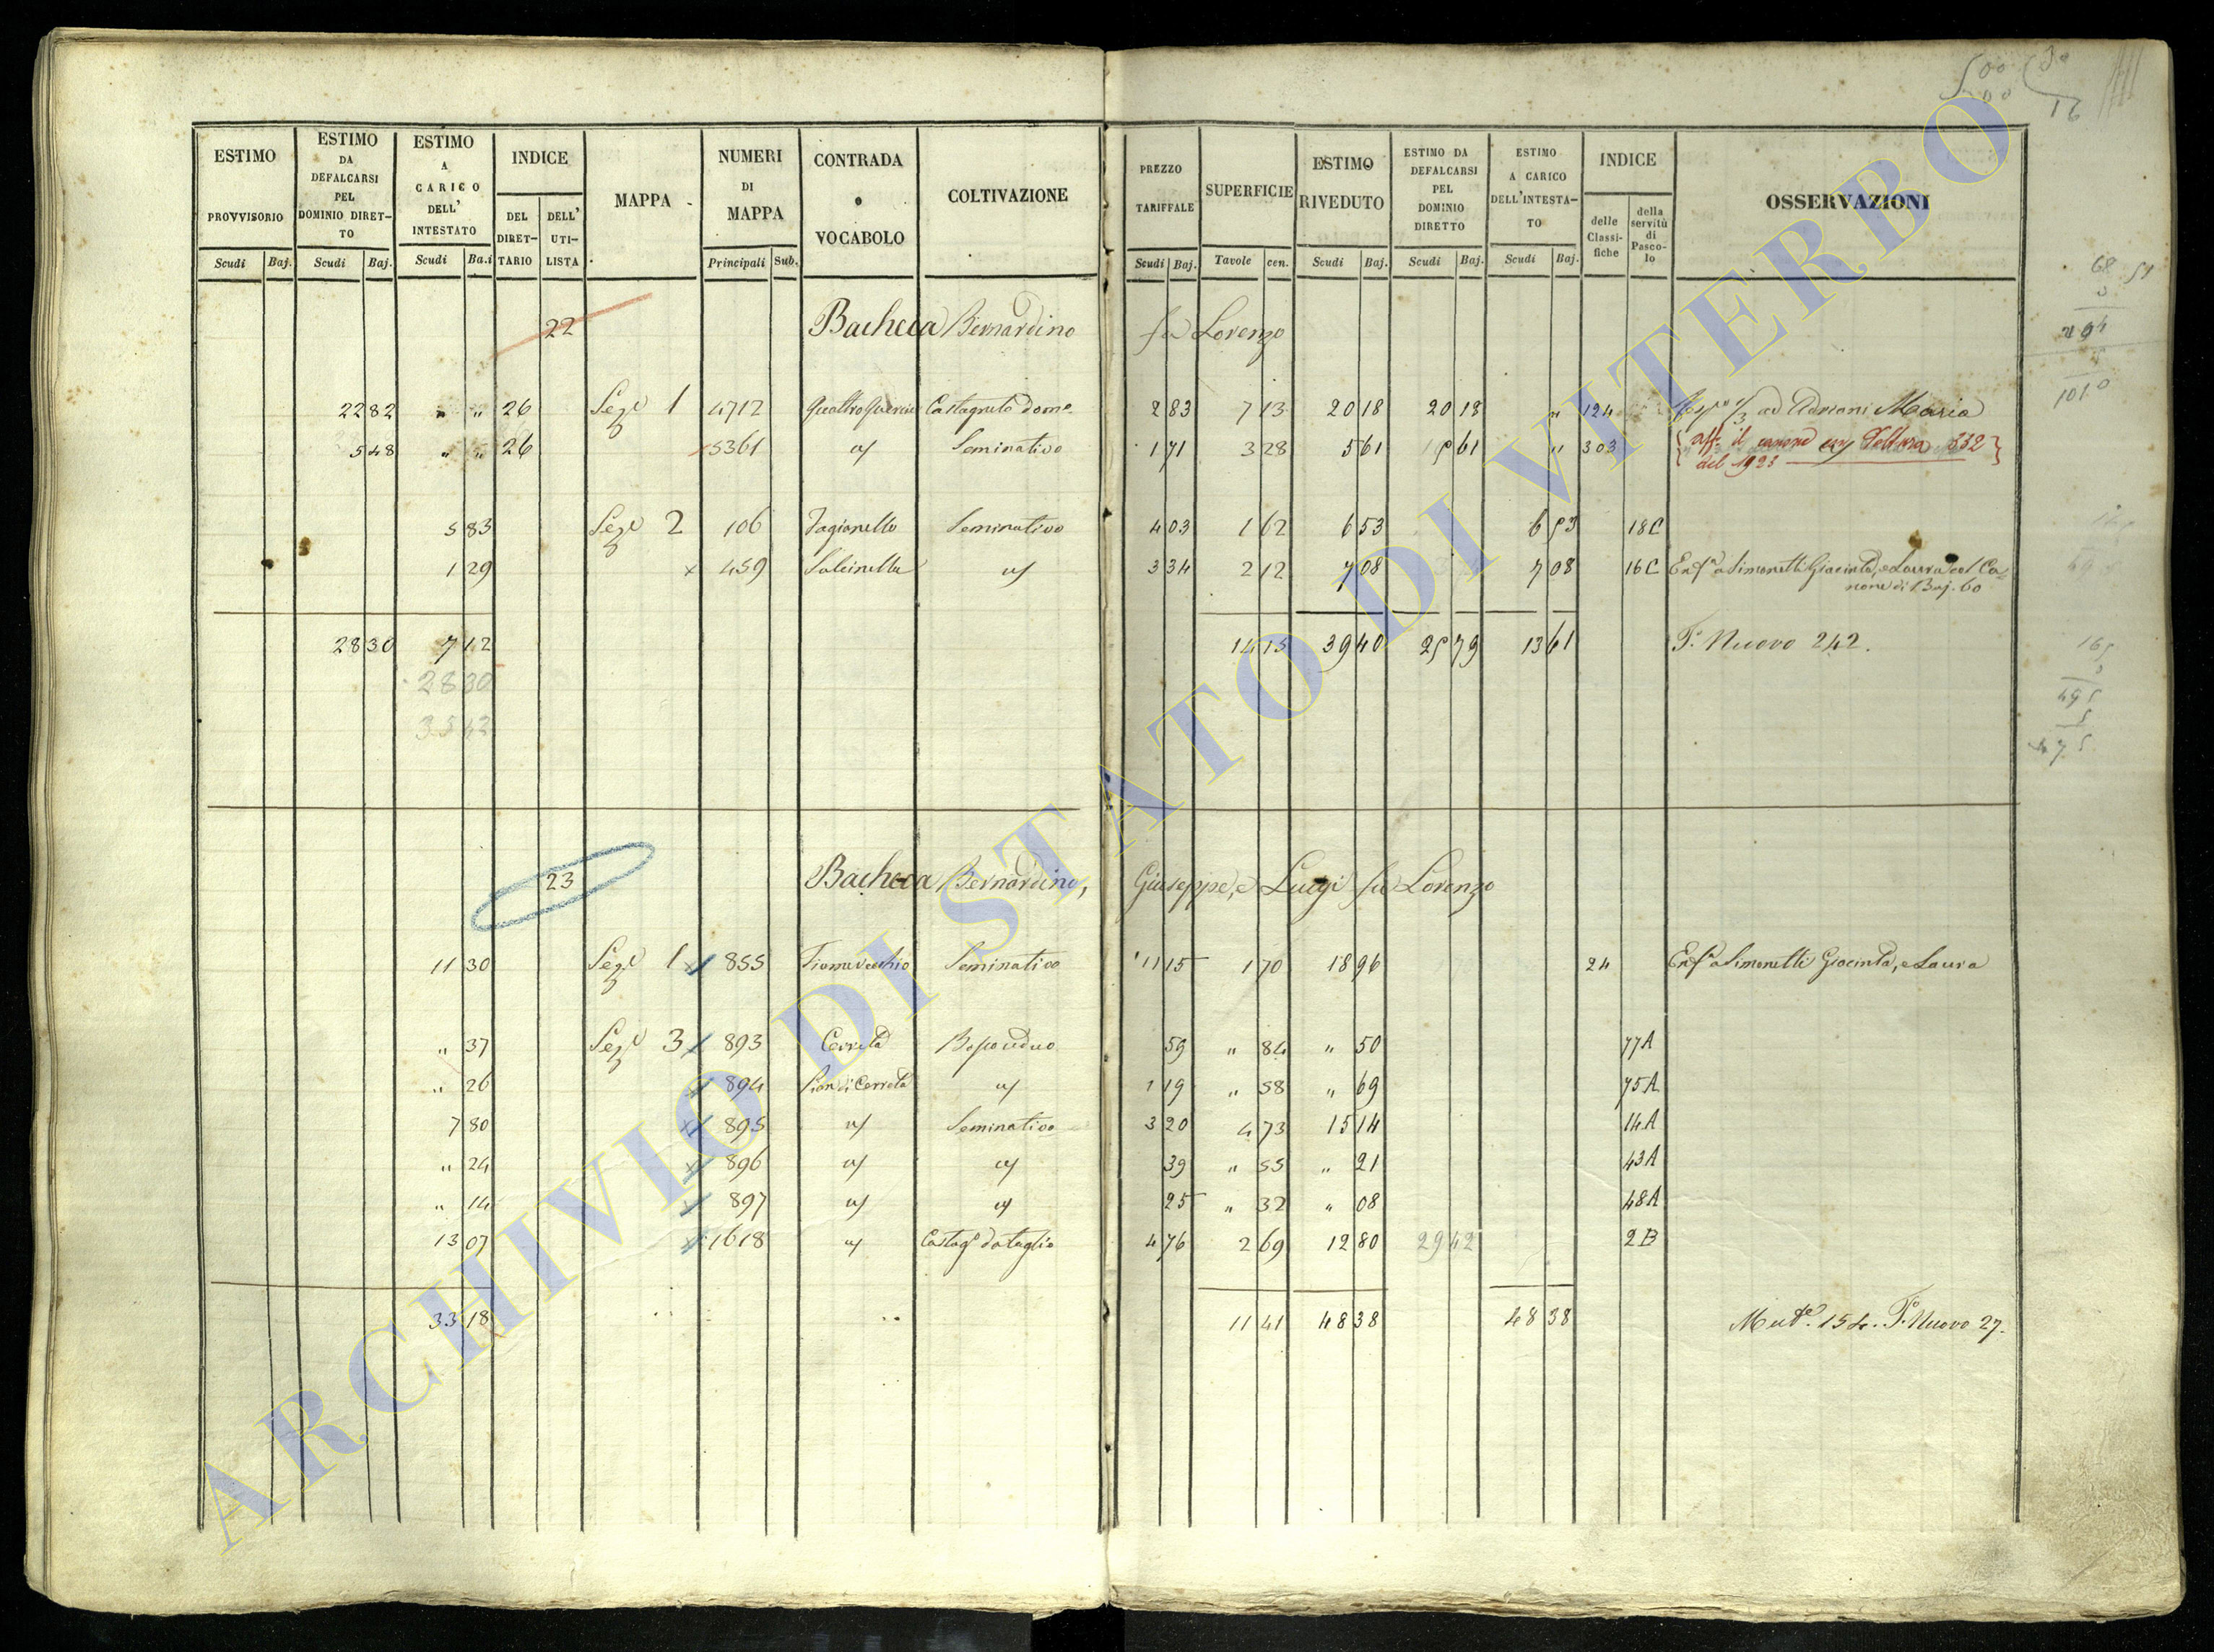 ESTIMO PROVVISORIO Scudi Baj.
ESTIMO DA DEFALCARSI PEL DOMINIO DIRETTO Scudi Baj.
ESTIMO A CARICO DELL' INTESTATO Scudi Ba.i
INDICE DEL DIRETTARIO DELL' UTILISTA
MAPPA
NUMERI DI MAPPA Principali Sub.
CONTRADA o VOCABOLO
COLTIVAZIONE
PREZZO TARIFFALE Scudi Baj.
SUPERFICIE Tavole cen.
ESTIMO RIVEDUTO Scudi Baj.
ESTIMO DA DEFALCARSI PEL DOMINIO DIRETTO Scudi Baj.
ESTIMO A CARICO DELL'INTESTATO Scudi Baj.
INDICE delle Classifiche della servitù di Pascolo
OSSERVAZIONI
22 Bacheca Bernardino fu Lorenzo
22 82 " " 26 Sez.e 1 4712 Quattro Quercie Castagneto dom.e 2 83 7 13 20 18 20 18 " 124 ad Adriani Maria
5 48 " " 26 5361 Seminativo 1 71 3 28 5 61 5 61 " 303 aff. il canone con Voltura 332
del 1923
5 83 Sez.e 2 106 Fagianello Seminativo 4 03 1 62 6 53 6 53 18C
1 29 x 459 Salcinella 3 34 2 12 7 08 7 08 16C Enf.a a Simonetti Giacinta, e Laura col Ca=
none di Baj. 60
28 30 7 12 14 15 39 40 25 79 13 61 F. Nuovo 242.
28 30
35 42
23 Bacheca Bernardino, Giuseppe, e Luigi fu Lorenzo
11 30 Sez.e 1 855 Fiume vecchio Seminativo 11 15 1 70 18 96 24 Enf.a a Simonetti Giacinta, e Laura
" 37 Sez.e 3 893 Cerreta Bosco ceduo 59 " 84 " 50 77A
" 26 894 Pian di Cerreta 1 19 " 58 " 69 75A
7 80 895 Seminativo 3 20 4 73 15 14 14A
" 24 896 39 " 55 " 21 43A
" 14 897 25 " 32 " 08 48A
13 07 1618 Castag.o da taglio 4 76 2 69 12 80 29 42 2B
33 18 11 41 48 38 48 38 F. Nuovo 27.
ARCHIVIO DI STATO DI VITERBO